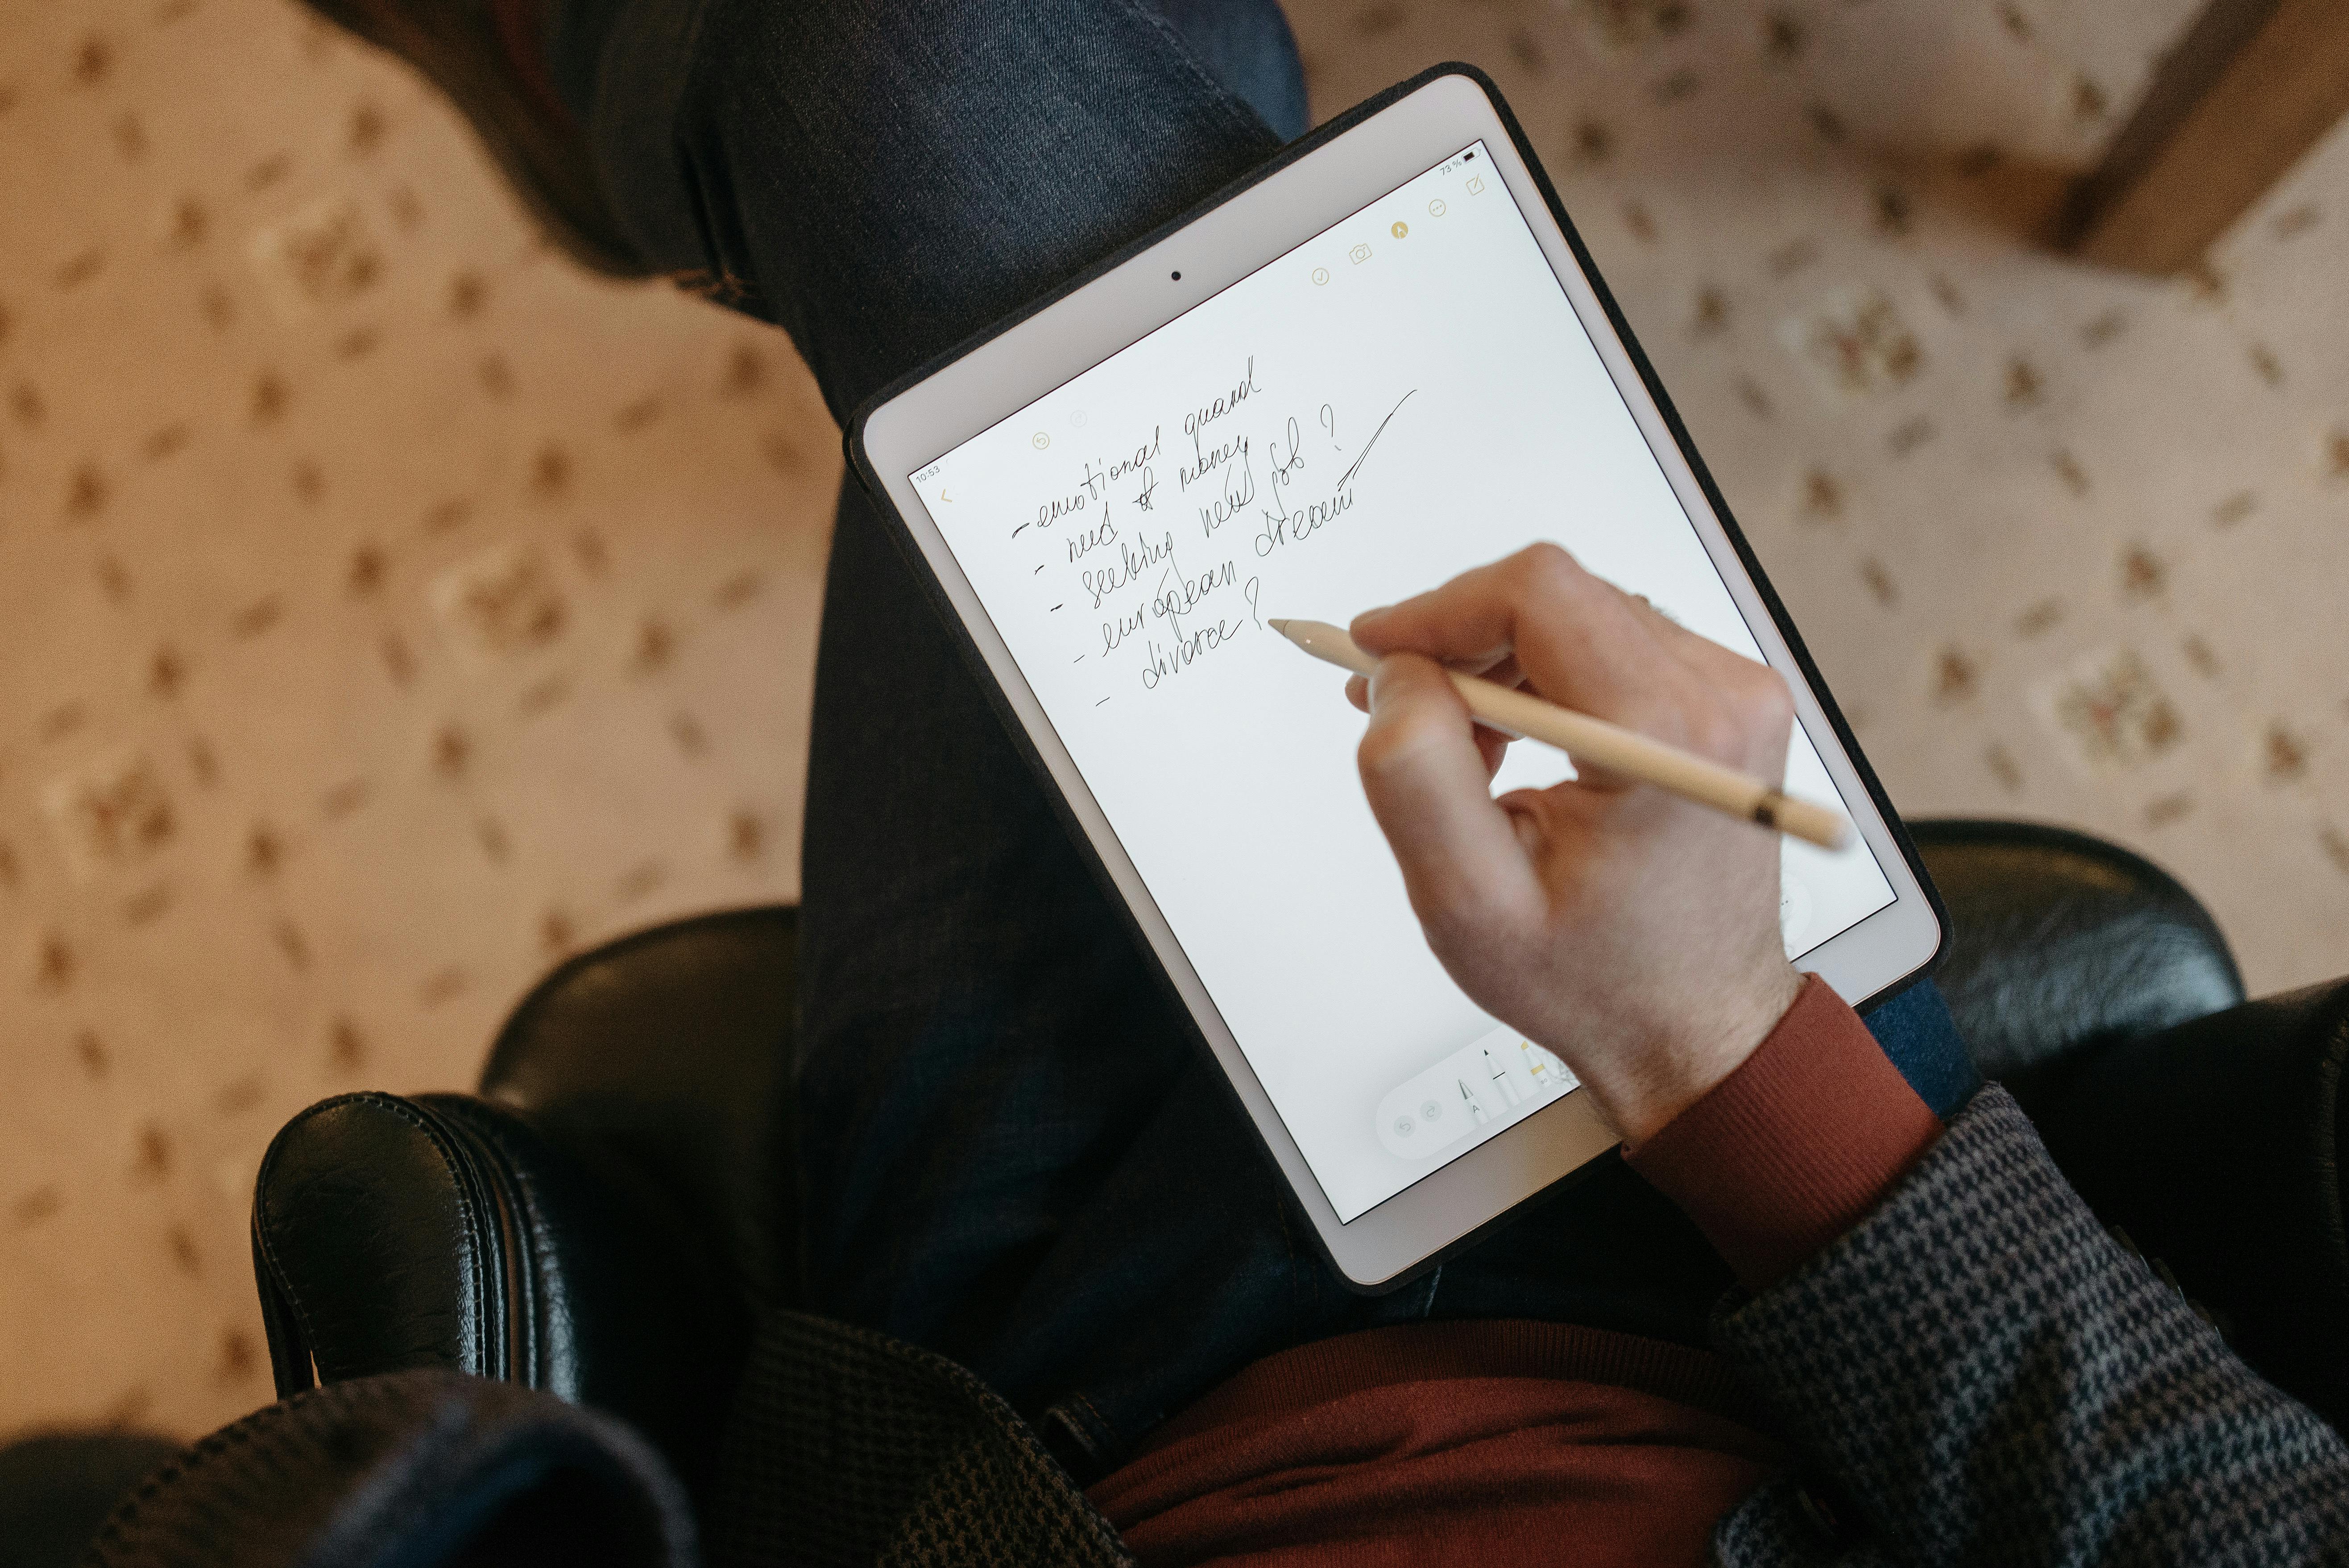 10:53
73 %
- emotional quarrel
- need of money
- seeking new job ?
- european dream
- divorce ?